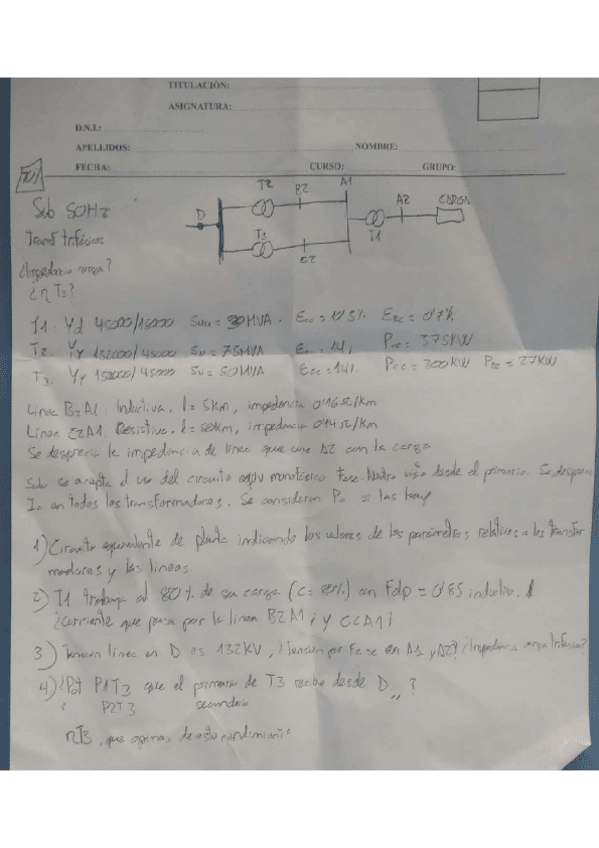 TITULACIÓN:
ASIGNATURA:
D.N.I.:
APELLIDOS: NOMBRE:
FECHA: CURSO: GRUPO:
Sub 50Hz
Transf trifásicos
¿Impedancia carga?
¿η T3?
D T2 B2 A1 A2 CARGA
T3 C2 T1
T1: Yd 45000/15000 MVA. Ecc = 10'5% =0'7%
T2: Yy 132000/45000 Sn = 75MVA = 14% = 375KW
T3: Yy 132000/45000 Sn = 50MVA Ecc = 14% Pcc = 300KW = 27KW
Linea B2A1: Inductiva, l = 5Km, impedancia 0'16Ω/Km
Linea C2A1: Resistiva, l = impedancia 0'14Ω/Km
Se desprecia la impedancia de linea que une A2 con la carga
Solo se acepta el uso del circuito equiv monofásico Fase-Neutro visto desde el primario. Se desprecia
Io en todos los transformadores. Se consideran Po =
1) Circuito equivalente de planta indicando los valores de los parámetros relativos a los transfor
madores y las lineas
2) T1 trabaja al 80% de su carga (C= 80%) con Fdp = 0'85 inductivo.
¿corriente que pasa por la linea B2A1 y C2A1?
3) Tension linea en D es 132KV, ¿Tension por Fase en A1 y A2? ¿Impedancia carga trifásica?
4) ¿Pot P1T3 que el primario de T3 recibe desde D?
P2T3 secundario
ηT3, que opinas de este rendimiento